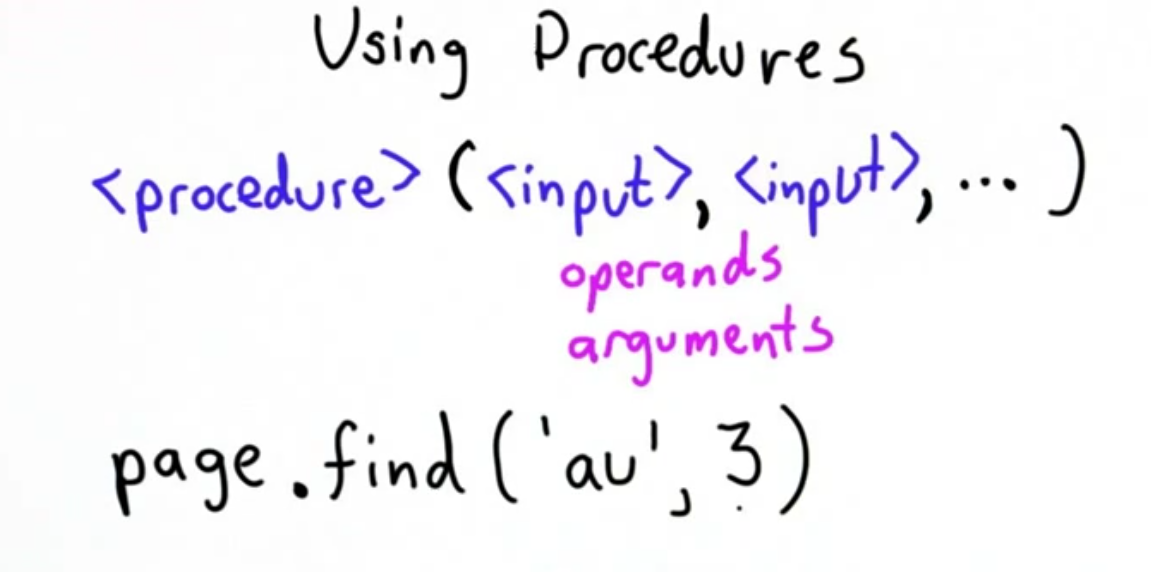 Using Procedures
<procedure> (<input>, <input>, ... )
operands
arguments
page.find ('au', 3)